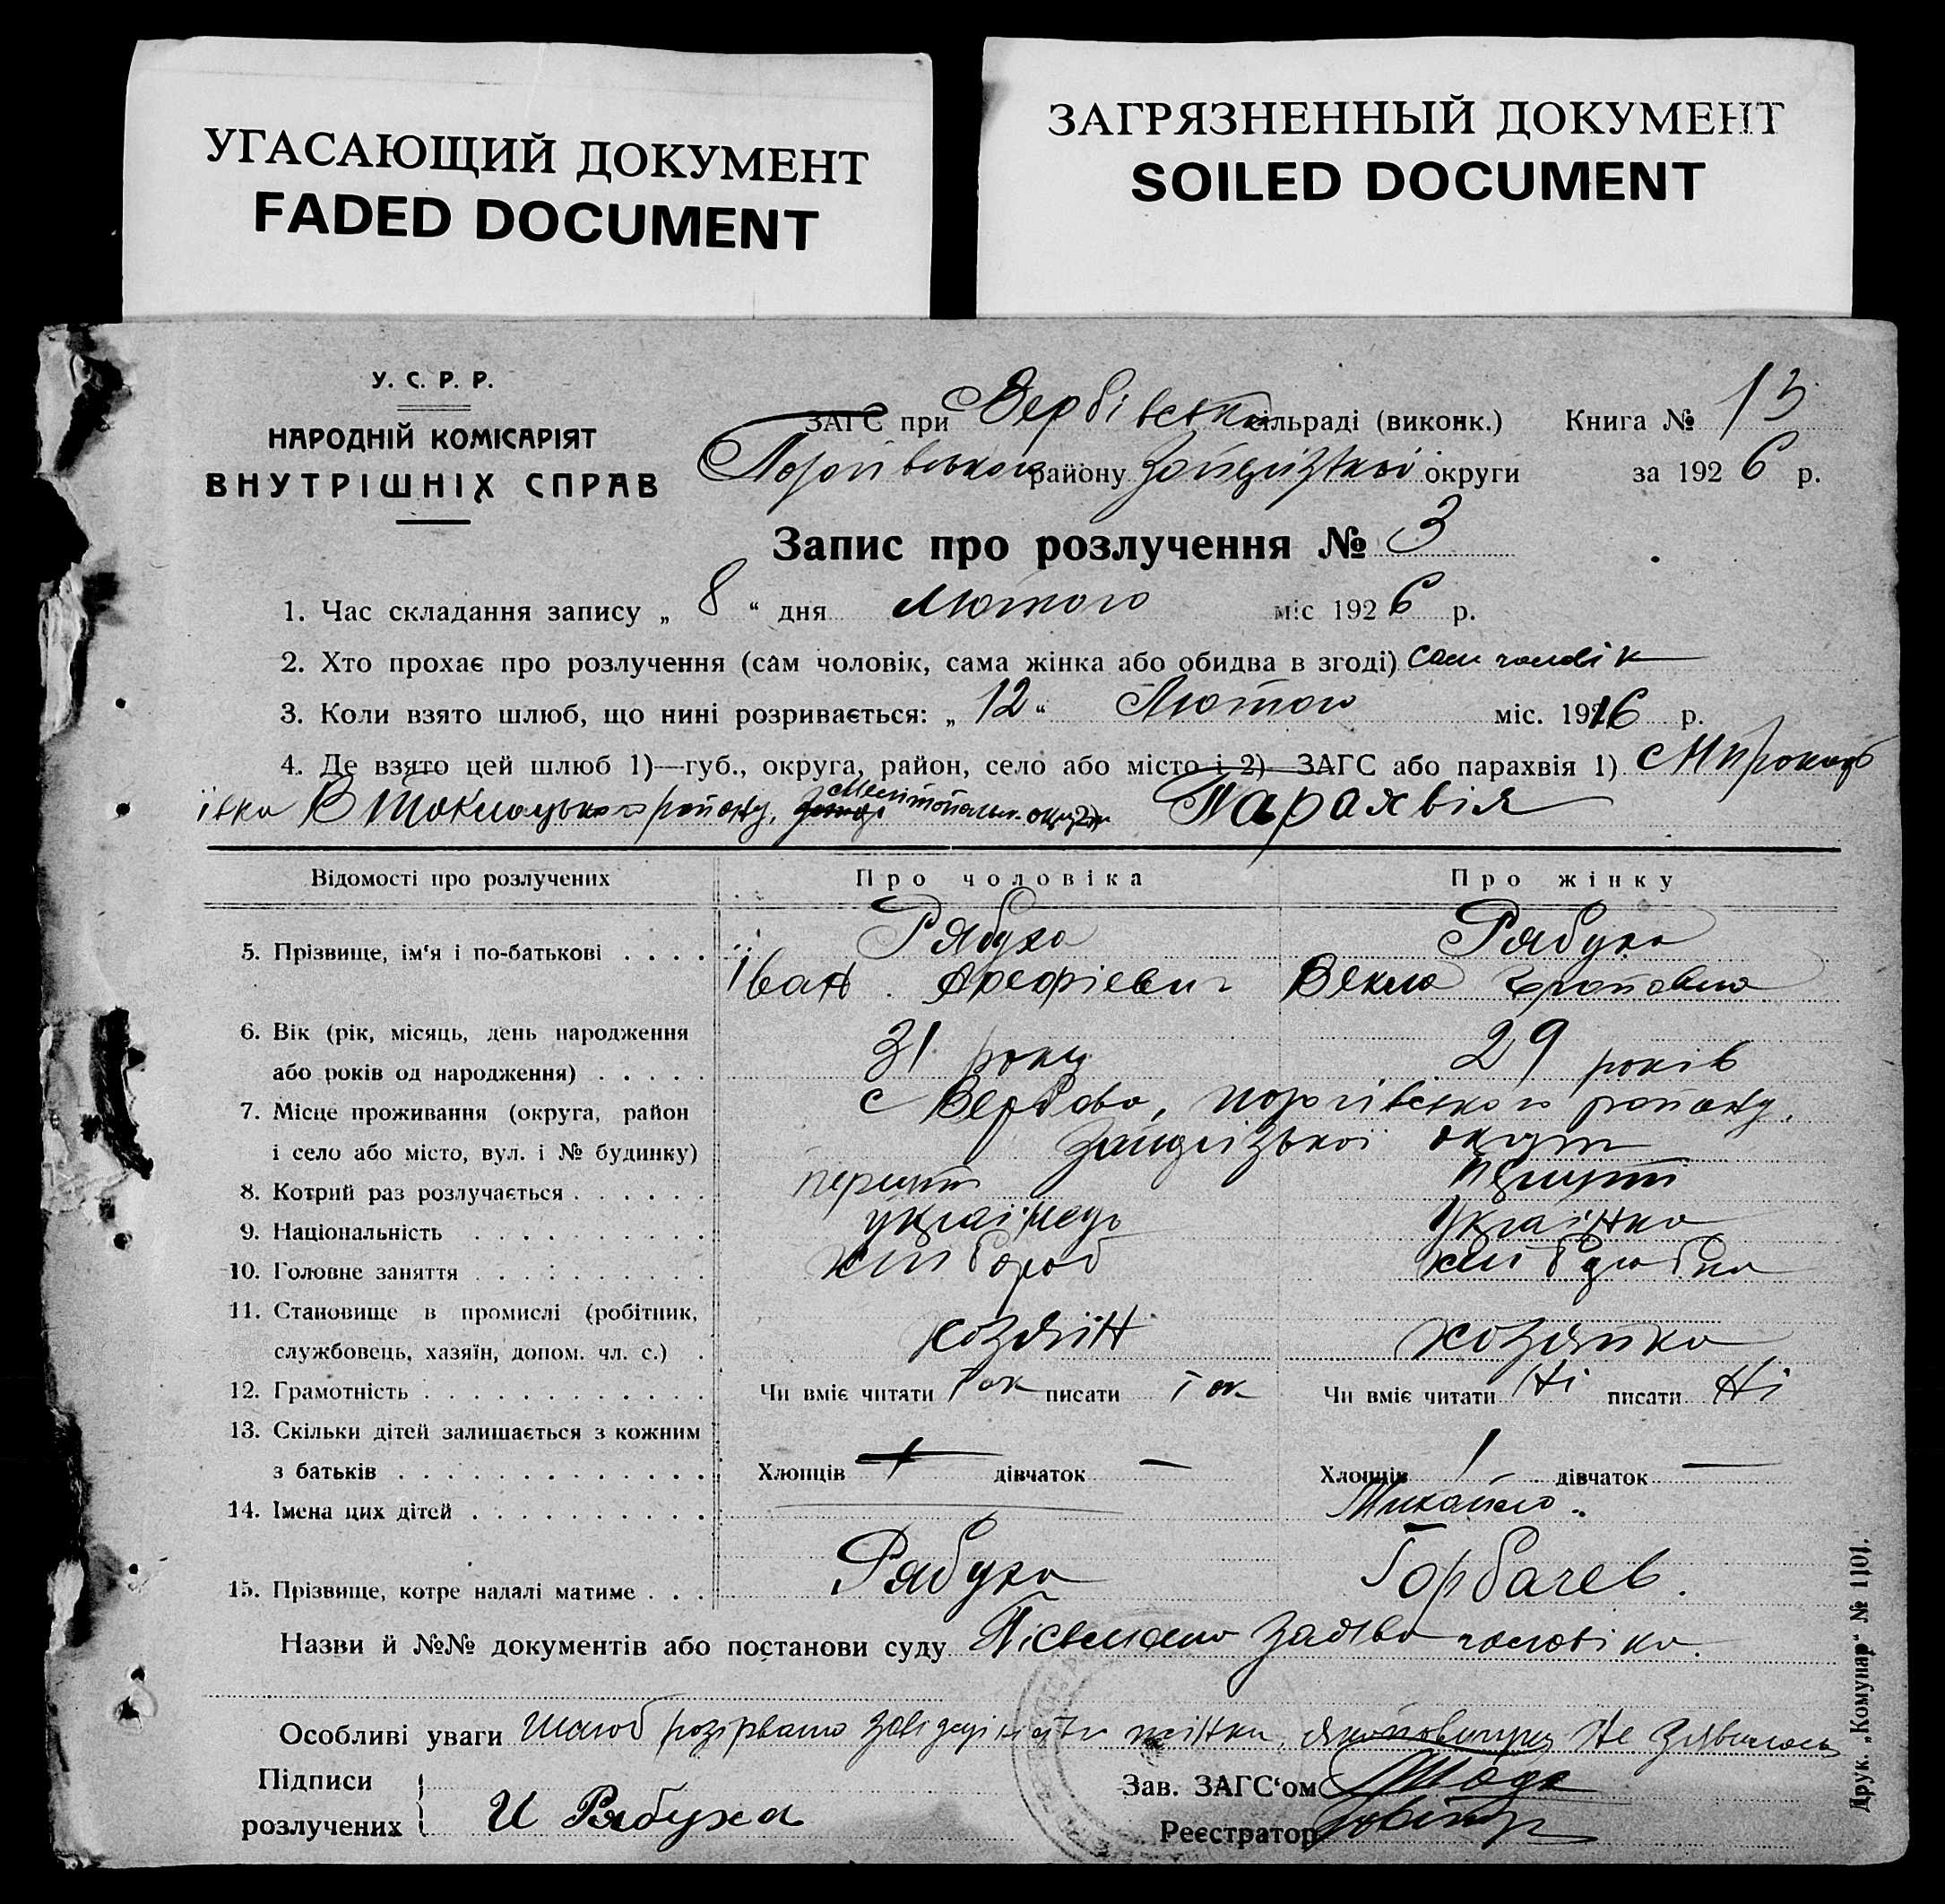 УГАСАЮЩИЙ ДОКУМЕНТ
FADED DOCUMENT
ЗАГРЯЗНЕННЫЙ ДОКУМЕНТ
SOILED DOCUMENT
У. С. Р. Р.
НАРОДНІЙ КОМІСАРІЯТ
ВНУТРІШНІХ СПРАВ
ЗАГС при Вербівській сільраді (виконк.) Книга № 13
району округи за 1926 р.
Запис про розлучення № 3
1. Час складання запису „ 8 “ дня Лютого міс 1926 р.
2. Хто прохає про розлучення (сам чоловік, сама жінка або обидва в згоді) сам чоловік
3. Коли взято шлюб, що нині розривається: „ 12 “ Лютого міс. 1916 р.
4. Де взято цей шлюб 1)—губ., округа, район, село або місто і 2) ЗАГС або парахвія 1)
івка В Токмацького району, 2) Парахвія
Відомості про розлучених Про чоловіка Про жінку
5. Прізвище, ім'я і по-батькові Рябуха Рябуха
Іван Арефіевич Векла
6. Вік (рік, місяць, день народження
або років од народження) 31 року 29 років
7. Місце проживання (округа, район с Вербова, Пологівського району,
і село або місто, вул. і № будинку) округи
8. Котрий раз розлучається перший перший
9. Національність українець Українка
10. Головне заняття хлібороб хліборобка
11. Становище в промислі (робітник,
службовець, хазяїн, допом. чл. с.) хозяїн хозяйка
12. Грамотність Чи вміє читати Так писати Так Чи вміє читати Ні писати Ні
13. Скільки дітей залишається з кожним
з батьків Хлопців — дівчаток — Хлопців 1 дівчаток —
14. Імена цих дітей Михайло.
15. Прізвище, котре надалі матиме Рябуха Горбачев.
Назви й №№ документів або постанови суду Пісьмена заява чоловіка.
Особливі уваги Шлюб розірвано жінки, не зявилась
Підписи
розлучених И Рябуха
Зав. ЗАГС'ом
Реєстратор
Друк. „Комунар“ № 1101.